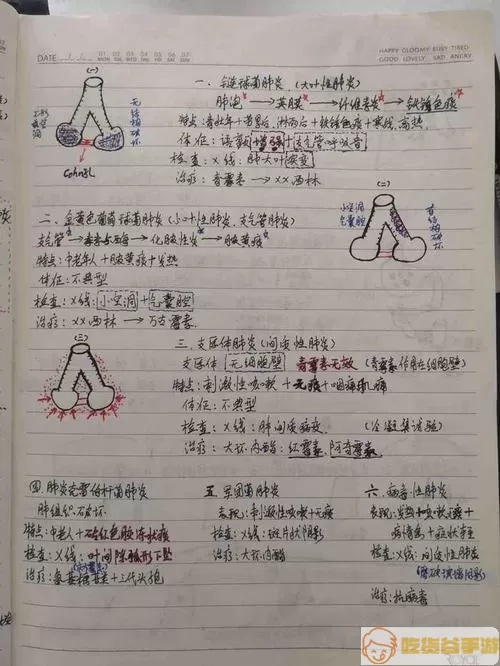 DATE
01 02 03 04 05 06 07
MON TUE WED THU FRI SAT SUN
HAPPY GLOOMY BUSY TIRED
GOOD LOVELY SAD ANGRY
(一)
无结构破坏
Cohn孔
一、链球菌肺炎 (大叶性肺炎)
肺泡 → 实膜 → 纤维素炎 → 铁锈色痰
特点: 青壮年+着凉后、淋雨后+铁锈色痰+寒战、高热
体征: 语颤增强+支气管呼吸音
检查: X线: 肺大叶实变
治疗: 青霉素 → XX西林
(二)
小空洞
气囊腔
有结构破坏
二、金黄色葡萄球菌肺炎 (小叶性肺炎、支气管肺炎)
支气管 → 毒素与酶 → 化脓性炎 → 脓黄痰
特点: 中老年人+脓黄痰+发热
体征: 不典型
检查: X线: 小空洞+气囊腔
治疗: XX西林 → 万古霉素
(三)
三、支原体肺炎 (间质性肺炎)
支原体 无细胞壁 青霉素无效 (青霉素作用于细胞壁)
特点: 刺激性咳嗽+无痰+咽痛肌痛
体征: 不典型
检查: X线: 肺间质病变 (冷凝集试验)
治疗: 大环内酯: 红霉素、阿奇霉素
四、肺炎克雷伯杆菌肺炎
肺组织坏死
特点: 中老人+砖红色胶冻状痰
检查: X线: 叶间隙弧形下坠
治疗: 氨基糖苷类+三代头孢
五、军团菌肺炎
表现: 刺激性咳嗽+无痰
检查: X线: 斑片状阴影
治疗: 大环内酯
六、病毒性肺炎
表现: 发热和咳嗽无痰+
病情重+症状重
检查: X线: 间质性肺炎
(磨砂玻璃阴影)
治疗: 抗病毒
吃货谷手游